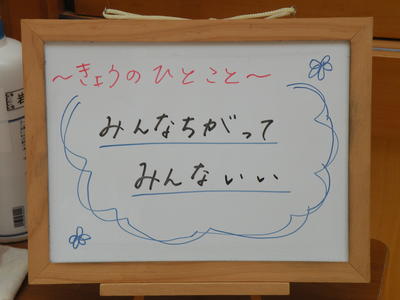 ～きょうのひとこと～
みんなちがって
みんないい